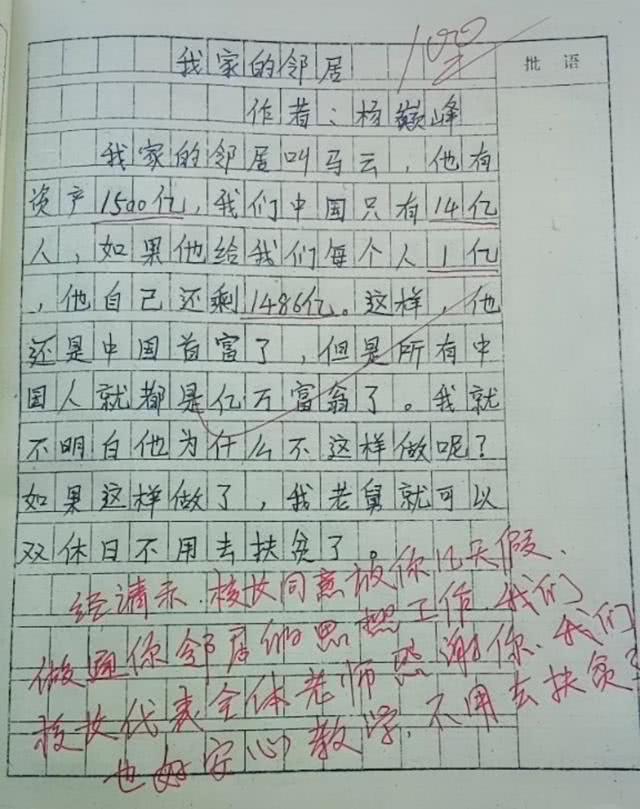 我家的邻居
100
批语
作者:杨巅峰
我家的邻居叫马云,他有
资产1500亿,我们中国只有14亿
人,如果他给我们每个人1亿
,他自己还剩1486亿。这样,他
还是中国首富了,但是所有中
国人就都是亿万富翁了。我就
不明白他为什么不这样做呢?
如果这样做了,我老舅就可以
双休日不用去扶贫了。
经请示、校长同意放你几天假、
做通你邻居的思想工作、我们
校长代表全体老师感谢你、我们
也好安心教学、不用去扶贫了